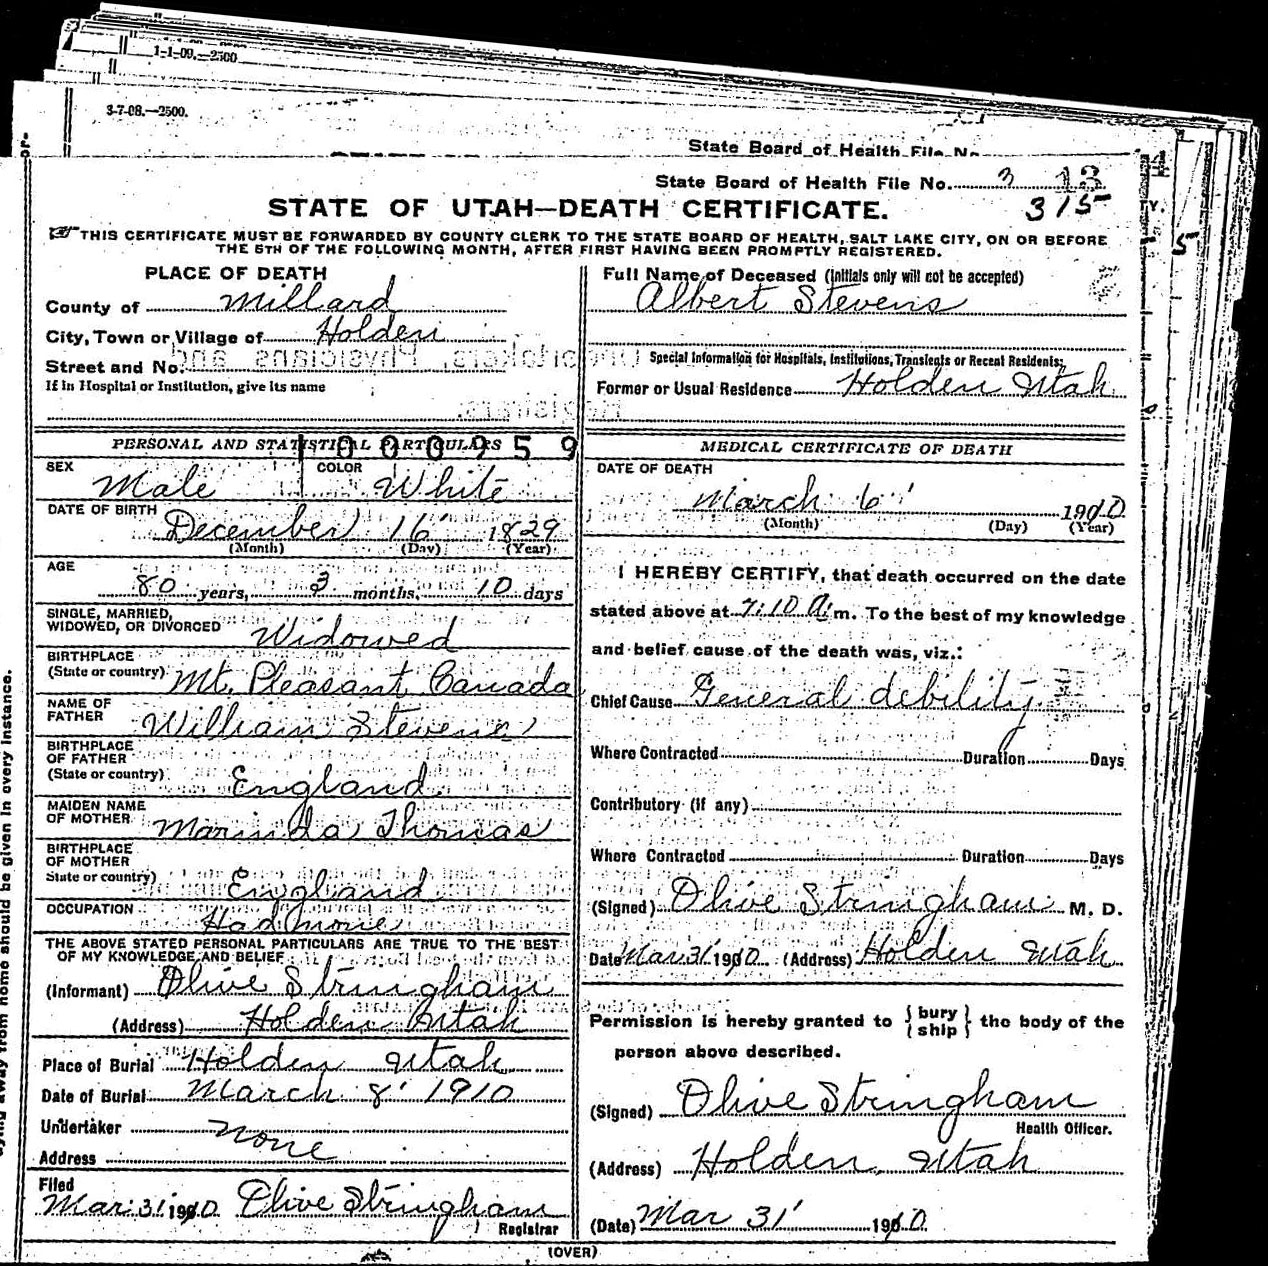 1-1-09.—2500
3-7-08.—2500.
State Board of Health File No.
State Board of Health File No. 3 13
315
STATE OF UTAH—DEATH CERTIFICATE.
THIS CERTIFICATE MUST BE FORWARDED BY COUNTY CLERK TO THE STATE BOARD OF HEALTH, SALT LAKE CITY, ON OR BEFORE
THE 5TH OF THE FOLLOWING MONTH, AFTER FIRST HAVING BEEN PROMPTLY REGISTERED.
PLACE OF DEATH
County of Millard
City, Town or Village of Holden
Street and No.
If in Hospital or Institution, give its name
Full Name of Deceased (initials only will not be accepted)
Albert Stevens
Special Information for Hospitals, Institutions, Transients or Recent Residents:
Former or Usual Residence Holden Utah
PERSONAL AND STATISTICAL PARTICULARS
1000959
SEX Male
COLOR White
DATE OF BIRTH December 16 1829
(Month) (Day) (Year)
AGE
80 years, 3 months, 10 days
SINGLE, MARRIED,
WIDOWED, OR DIVORCED Widowed
BIRTHPLACE
(State or country) Mt. Pleasant Canada
NAME OF
FATHER William Stevens
BIRTHPLACE
OF FATHER
(State or country) England
MAIDEN NAME
OF MOTHER Marinda Thomas
BIRTHPLACE
OF MOTHER
State or country) England
OCCUPATION Had none
THE ABOVE STATED PERSONAL PARTICULARS ARE TRUE TO THE BEST
OF MY KNOWLEDGE AND BELIEF
(Informant) Olive Stringham
(Address) Holden Utah
Place of Burial Holden Utah
Date of Burial March 8' 1910
Undertaker none
Address
Filed
Mar 31' 1910 Olive Stringham
Registrar
MEDICAL CERTIFICATE OF DEATH
DATE OF DEATH
March 6' 1910
(Month) (Day) (Year)
I HEREBY CERTIFY, that death occurred on the date
stated above at 7:10 A.m. To the best of my knowledge
and belief cause of the death was, viz.:
Chief Cause General debility
Where Contracted Duration Days
Contributory (if any)
Where Contracted Duration Days
(Signed) Olive Stringham M. D.
Date Mar 31 1910 (Address) Holden Utah
Permission is hereby granted to {bury
ship} the body of the
person above described.
(Signed) Olive Stringham
Health Officer.
(Address) Holden, Utah
(Date) Mar 31' 1910
(OVER)